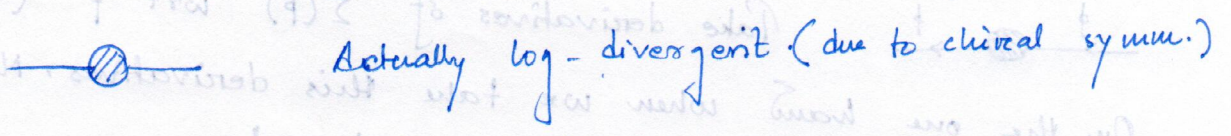 Actually log-divergent. (due to chiral symm.)